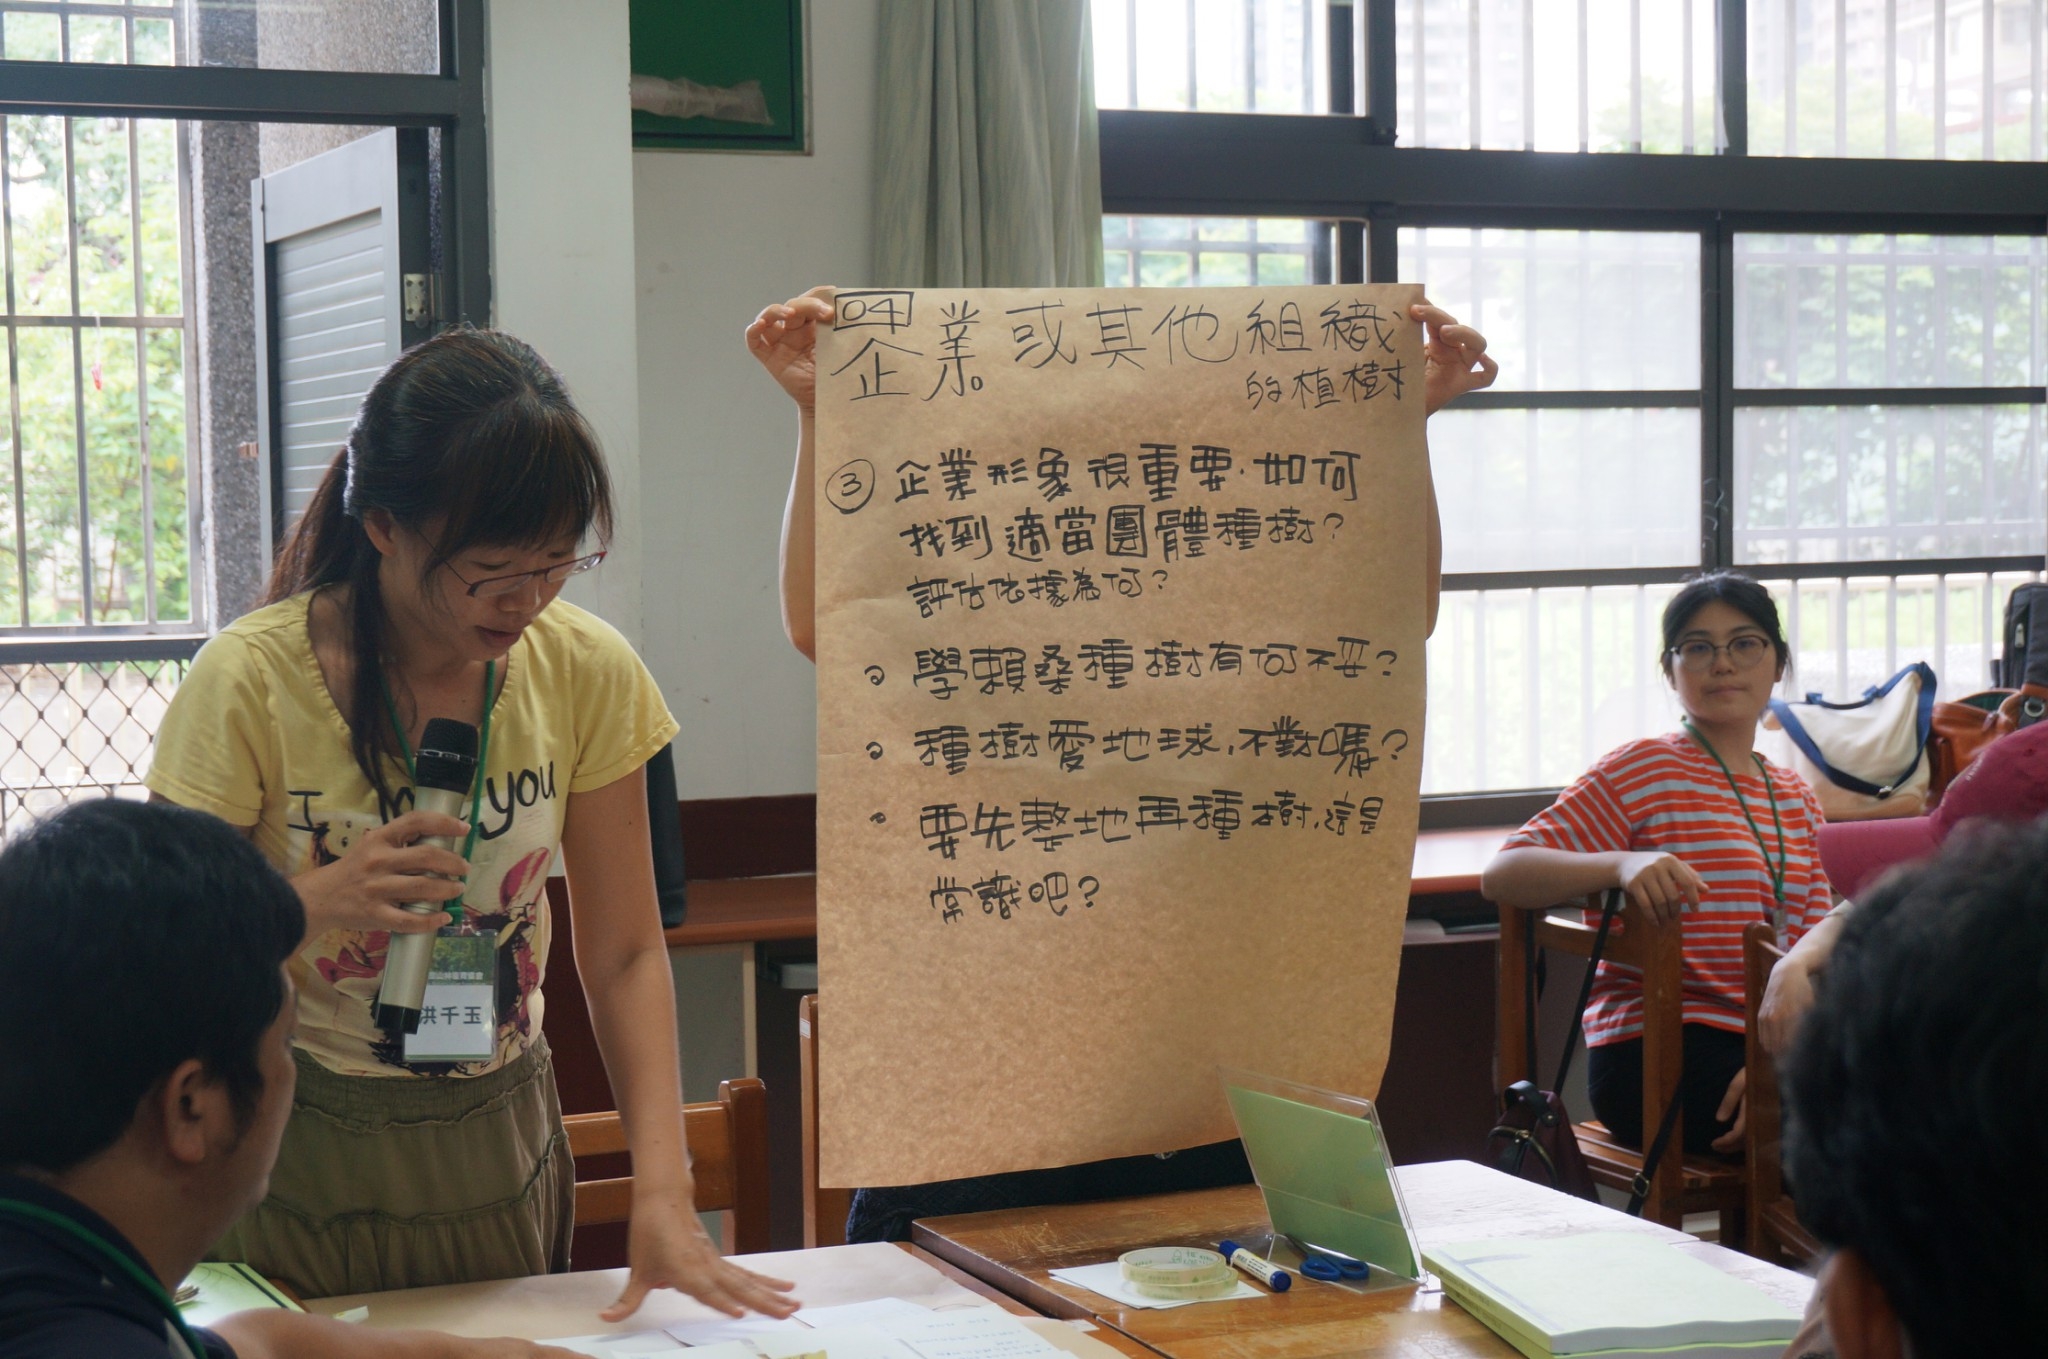 04
企業或其他組織
的植樹
③ 企業形象很重要.如何
找到適當團體種樹?
評估依據為何?
學賴桑種樹有何不妥?
種樹愛地球,不對嗎?
要先整地再種樹,這是
常識吧?
I
you
洪千玉